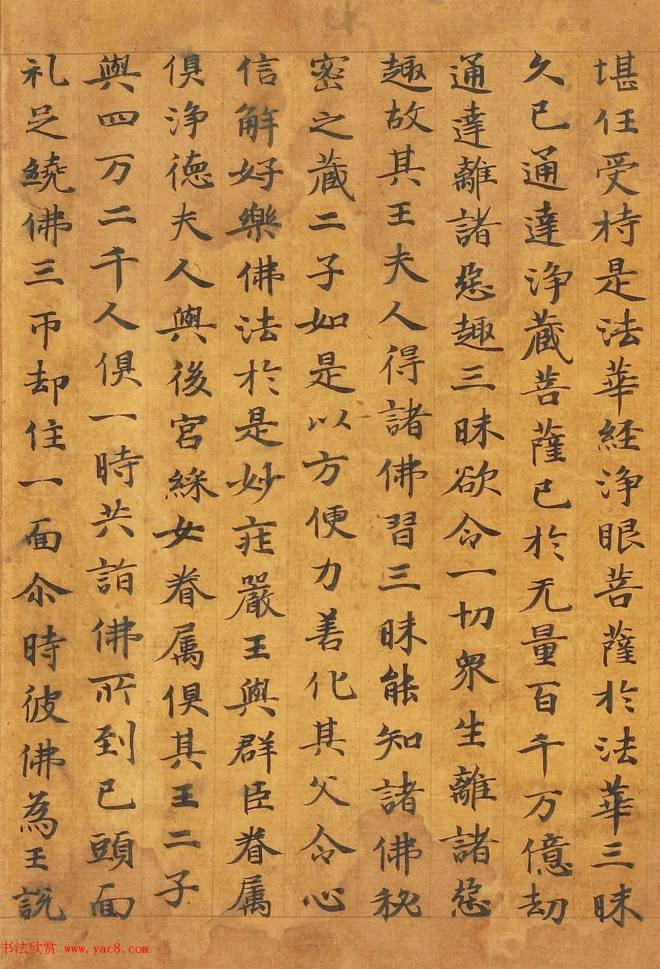 堪任受持是法華經淨眼菩薩於法華三昧
久已通達淨藏菩薩已於无量百千万億劫
通達離諸惡趣三昧欲令一切衆生離諸惡
趣故其王夫人得諸佛習三昧能知諸佛秘
密之藏二子如是以方便力善化其父令心
信解好樂佛法於是妙莊嚴王與群臣眷属
俱淨德夫人與後宮綵女眷属俱其王二子
與四万二千人俱一時共詣佛所到已頭面
礼足繞佛三帀却住一面尒時彼佛為王說
书法欣赏 www.yac8.com